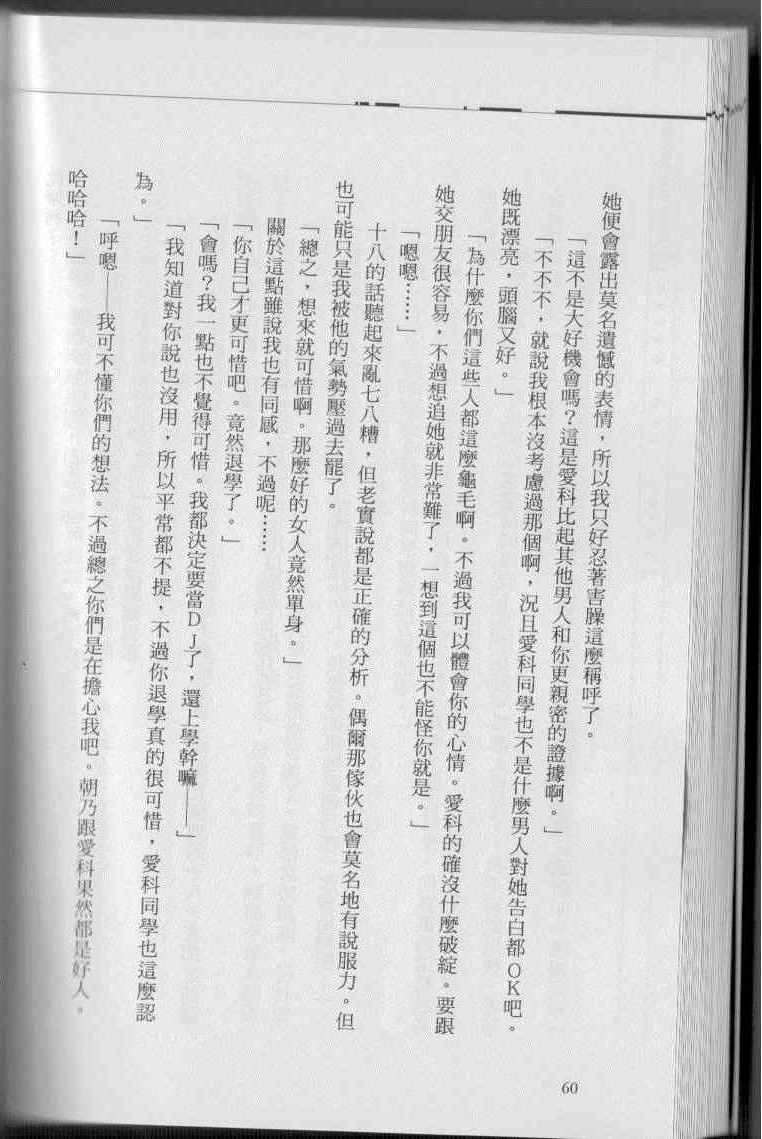 她便會露出莫名遺憾的表情，所以我只好忍著害臊這麼稱呼了。
「這不是大好機會嗎？這是愛科比起其他男人和你更親密的證據啊。」
「不不不，就說我根本沒考慮過那個啊，況且愛科同學也不是什麼男人對她告白都OK吧。
她既漂亮，頭腦又好。」
「為什麼你們這些人都這麼龜毛啊。不過我可以體會你的心情。愛科的確沒什麼破綻。要跟
她交朋友很容易，不過想追她就非常難了，一想到這個也不能怪你就是。」
「嗯嗯……」
十八的話聽起來亂七八糟，但老實說都是正確的分析。偶爾那傢伙也會莫名地有說服力。但
也可能只是我被他的氣勢壓過去罷了。
「總之，想來就可惜啊。那麼好的女人竟然單身。」
關於這點雖說我也有同感，不過呢……
「你自己才更可惜吧。竟然退學了。」
「會嗎？我一點也不覺得可惜。我都決定要當DJ了，還上學幹嘛——」
「我知道對你說也沒用，所以平常都不提，不過你退學真的很可惜，愛科同學也這麼認
為。」
「呼嗯——我可不懂你們的想法。不過總之你們是在擔心我吧。朝乃跟愛科果然都是好人。
哈哈哈！」
60